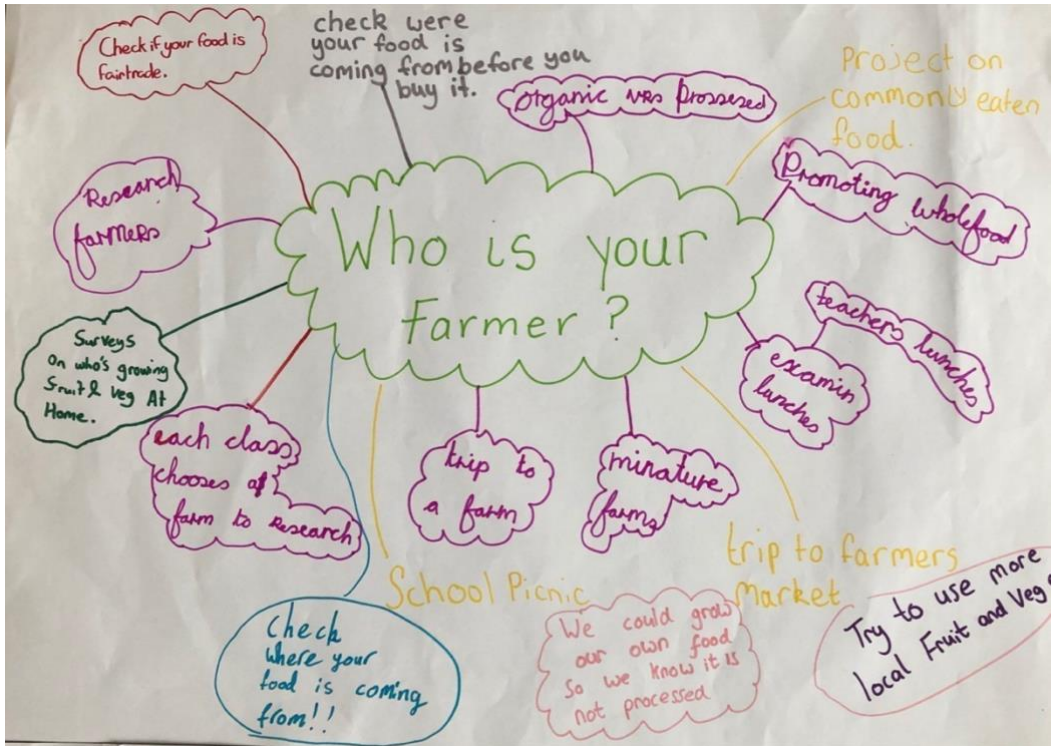 Check if your food is
fairtrade.
check were
your food is
coming from before you
buy it.
organic vrs prossesed
Project on
commonly eaten
food.
Promoting wholefood
Research
farmers
Who is your
Farmer?
teachers lunches
examin
lunches
Surveys
On who's growing
fruit & Veg At
Home.
each class
chooses a
farm to Research
trip to
a farm
minature
farms
School Picnic
trip to farmers
Market
Check
where your
food is coming
from!!
We could grow
our own food
So we know it is
not processed
Try to use more
local Fruit and Veg